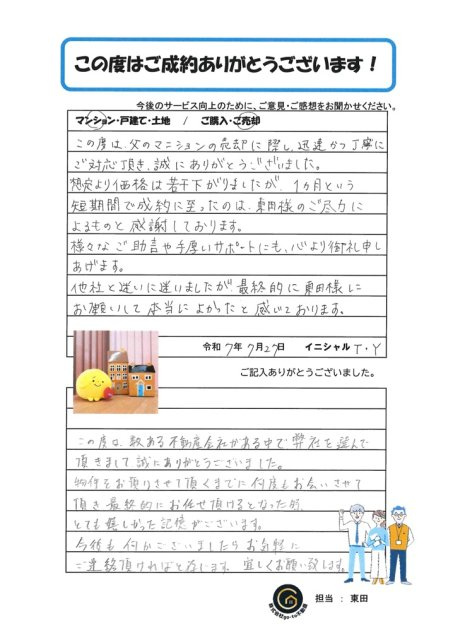 この度はご成約ありがとうございます！
今後のサービス向上のために、ご意見・ご感想をお聞かせください。
マンション・戸建て・土地　/　ご購入・ご売却
この度は、父のマンションの売却に際し、迅速かつ丁寧に
ご対応頂き、誠にありがとうございました。
想定より価格は若干下がりましたが、1ヵ月という
短期間で成約に至ったのは、東田様のご尽力に
よるものと感謝しております。
様々なご助言や手厚いサポートにも、心より御礼申し
あげます。
他社と迷いに迷いましたが、最終的に東田様に
お願いして本当によかったと感じております。
令和 7年 7月27日　イニシャル T・Y
ご記入ありがとうございました。
この度は、数ある不動産会社がある中で弊社を選んで
頂きまして誠にありがとうございました。
物件をお預りさせて頂くまでに何度もお会いさせて
頂き最終的にお任せ頂けるとなった時、
とても嬉しかった記憶がございます。
今後も何かございましたらお気軽に
ご連絡頂ければと存じます。宜しくお願い致します。
株式会社go-to不動産
担当 ： 東田